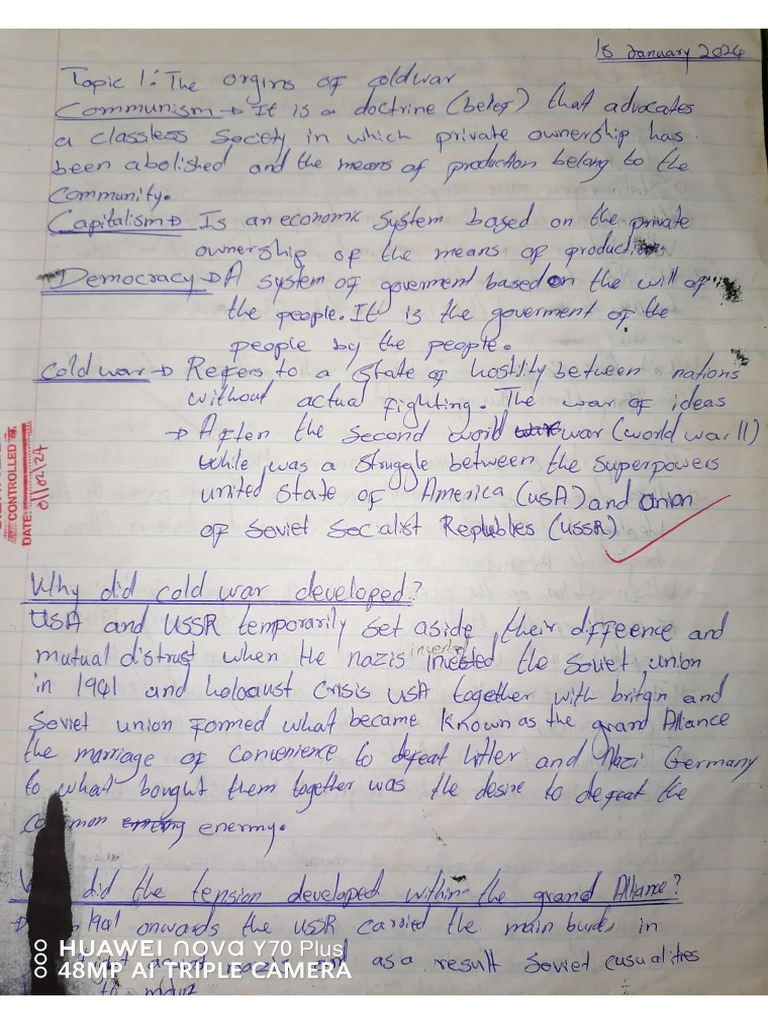 18 January 2024
Topic 1: The orgins of coldwar
Communism → It is a doctrine (belief) that advocates
a classless society in which private ownership has
been abolished and the means of production belong to the
community.
Capitalism → Is an economic system based on the private
ownership of the means of production
Democracy → A system of goverment based on the will of
the people. It is the goverment of the
people by the people.
Cold war → Refers to a state of hostility between nations
without actual fighting. The war of ideas
→ After the second world war (world war II)
While was a struggle between the superpowers
united state of America (USA) and Union
of Soviet Socialist Republics (USSR)
CONTROLLED
DATE: 01/02/24
Why did cold war developed?
USA and USSR temporarily set aside, their diffeence and
mutual distrust when the nazis invested the Soviet union
in 1941 and holocaust crisis USA together with britain and
Soviet union formed what became known as the grand Alliance
the marriage of convenience to defeat hitler and Nazi Germany
to what bought them together was the desire to defeat the
common enermy.
did the tension developed within the grand Alliance?
1941 onwards the USSR carried the main burden in
nazis and as a result Soviet cusualities
to mount
HUAWEI nova Y70 Plus
48MP AI TRIPLE CAMERA